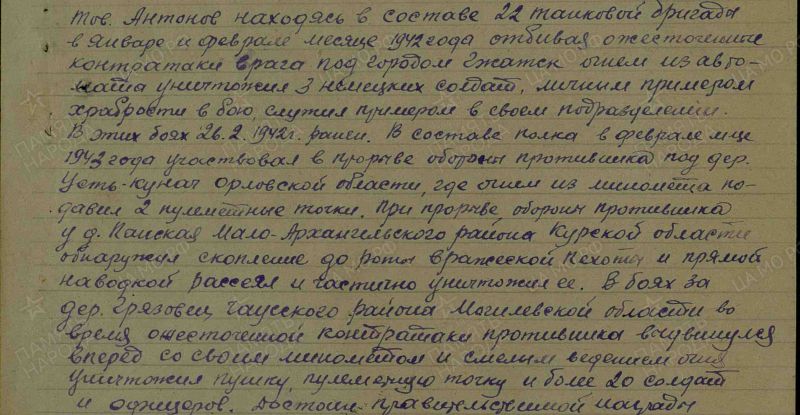 тов. Антонов находясь в составе 22 танковой бригады
в январе и феврале месяце 1942 года отбивая ожесточенные
контратаки врага под городом Гжатск огнем из авто-
мата уничтожил 3 немецких солдат, личным примером
храбрости в бою, служил примером в своем подразделении.
В этих боях 26.2.1942г. ранен. В составе полка в феврале м-це
1943 года участвовал в прорыве обороны противника под дер.
Усть-кунач Орловской области, где огнем из миномета по-
давил 2 пулеметные точки. При прорыве обороны противника
у д. Панская Мало-Архангельского района Курской области
обнаружил скопление до роты вражеской пехоты и прямой
наводкой рассеял и частично уничтожил ее. В боях за
дер. Грязовец Чаусского района Могилевской области во
время ожесточенной контратаки противника выдвинулся
вперед со своим минометом и смелым ведением огня
уничтожил пушку, пулеметную точку и более 20 солдат
и офицеров. Достоин правительственной награды